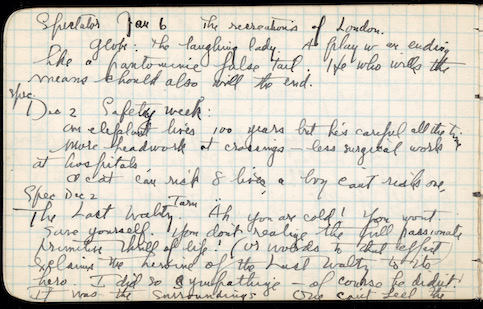 Spectator Jan 6 The recreations of London.
Globe: The laughing lady. A play w an ending
like a pantomimic false tail. He who wills the
means should also will the end.
Spec.
Dec 2 Safety week:
An elephant lives 100 years but he's careful all the time
More headwork at crossings – less surgical work
at hospitals
A cat can risk 8 lives, a boy can't risk one,
Spec Dec 2
The Last Waltz. Tarn Ah you are cold! You wont
save yourself. You dont realize the full passionate
primitive thrill of life! (or words to that effect)
exclaims the heroine of the Last Waltz to its
hero. I did so sympathize – of course he didnt!
It was the surroundings One cant feel the